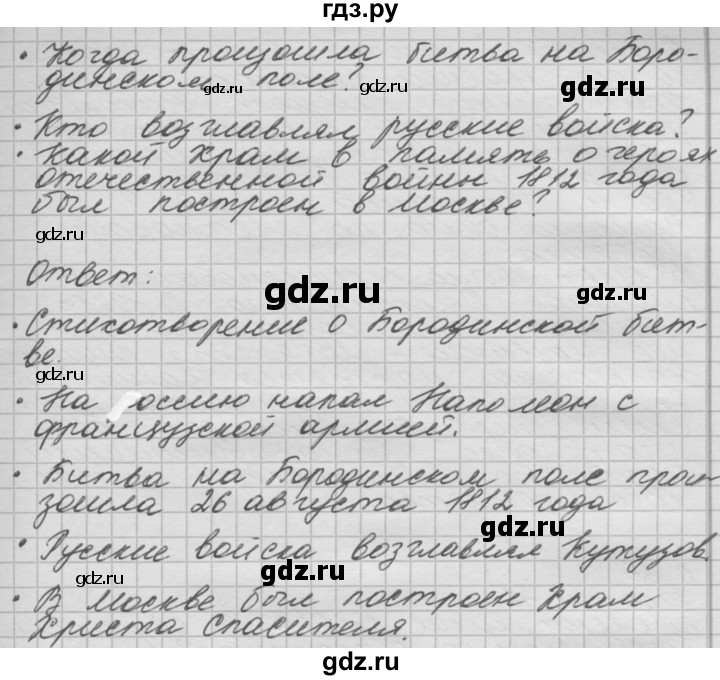 гдз.ру
• Когда прозошла битва на Боро-
динском поле?
gdz.ru gdz.ru gdz.ru
• Кто возглавлял русские войска?
• Какой храм в память о героях
отечественной войны 1812 года
был построен в Москве?
gdz.ru
Ответ:
gdz.ru gdz.ru
• Стихотворение о Бородинской бит-
ве.
gdz.ru
• На Россию напал Наполеон с
французской армией.
• Битва на Бородинском поле прои-
зошла 26 августа 1812 года
gdz.ru
• Русские войска возглавлял Кутузов.
gdz.ru gdz.ru
• В Москве был построен Храм
Христа Спасителя.
gdz.ru